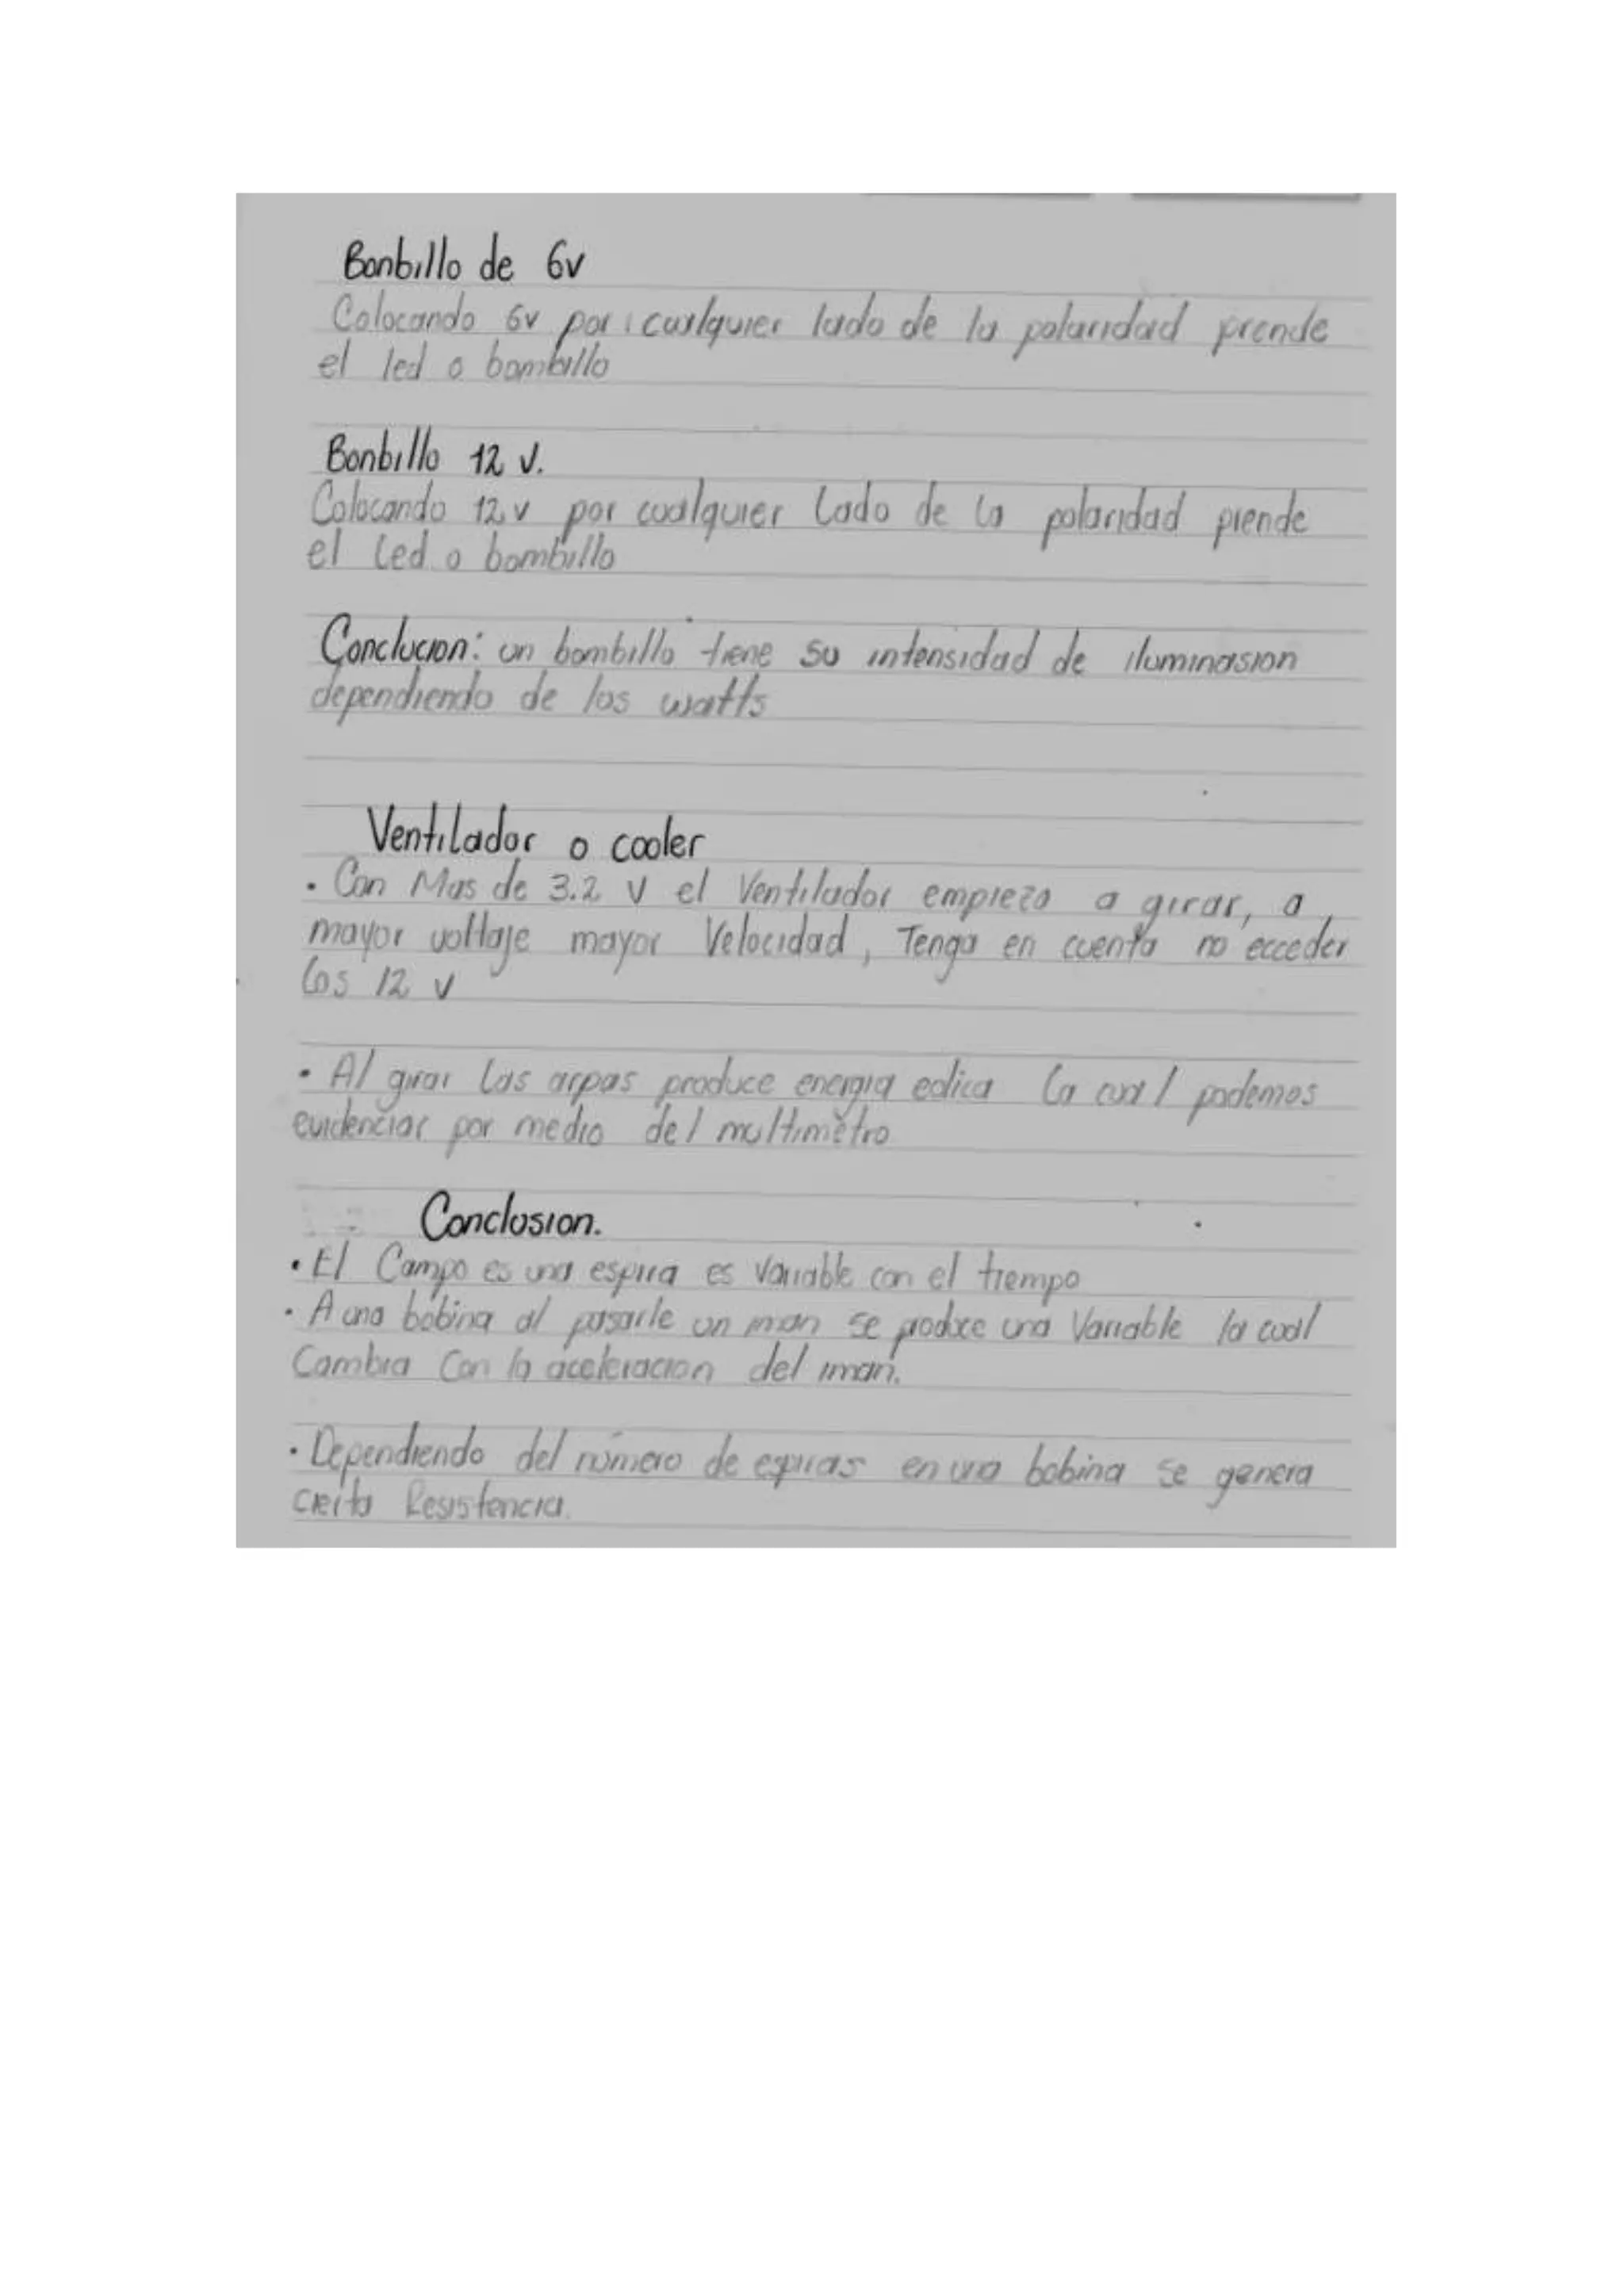 Bonbillo de 6v
Colocando 6v por cualquier lado de la polaridad prende
el led o bombillo
Bonbillo 12 v.
Colocando 12v por cualquier lado de la polaridad prende
el led o bombillo
Conclucion: un bombillo tiene su intensidad de iluminasion
dependiendo de los watts
Ventilador o cooler
• Con Mas de 3.2 v el Ventilador empieza a girar, a
mayor voltaje mayor Velocidad, Tenga en cuenta no ecceder
los 12 v
• Al girar las arpas produce energia eolica la cual podemos
evidenciar por medio del multimetro
Conclusion.
• El Campo es una espira es variable con el tiempo
• A una bobina al pasarle un iman se produce una Variable la cual
Cambia Con la aceleracion del iman.
• Dependiendo del número de espiras en una bobina se genera
cierta Resistencia.